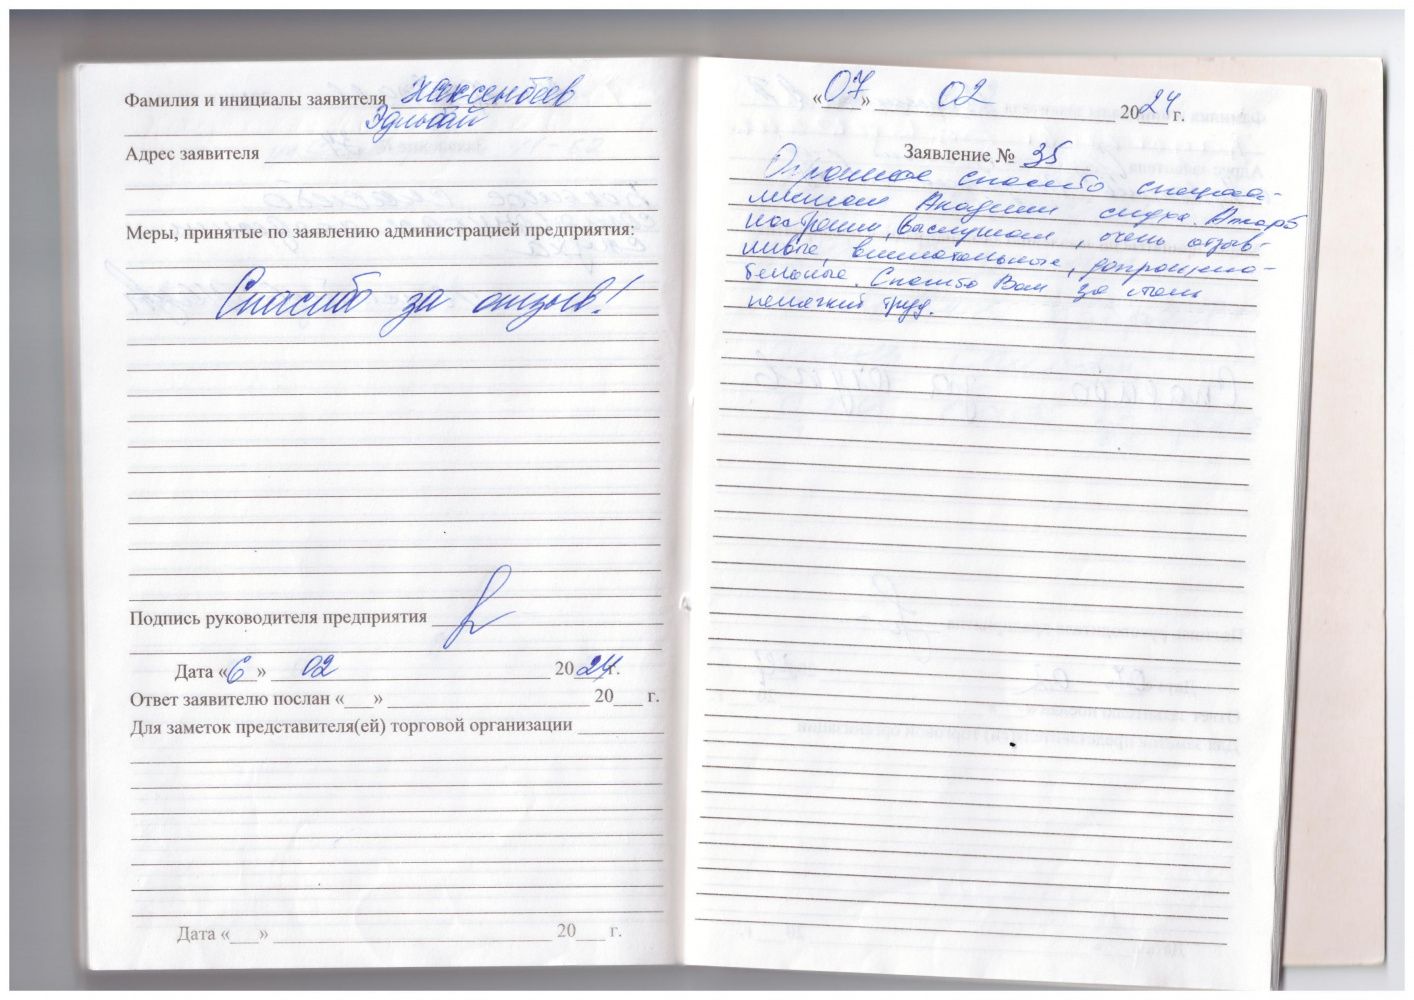 Фамилия и инициалы заявителя Жаксенбаев
Эдильбай
Адрес заявителя
Меры, принятые по заявлению администрацией предприятия:
Спасибо за отзыв!
Подпись руководителя предприятия
Дата «6» 02 2024 г.
Ответ заявителю послан «___» 20___ г.
Для заметок представителя(ей) торговой организации
Дата «___» 20___ г.
«07» 02 2024 г.
Заявление № 35
Огромное спасибо специа-
листам Академии слуха.
настроили, выслушали, очень отзыв-
чивые, внимательные, доброжела-
тельные. Спасибо Вам за столь
нелегкий труд.